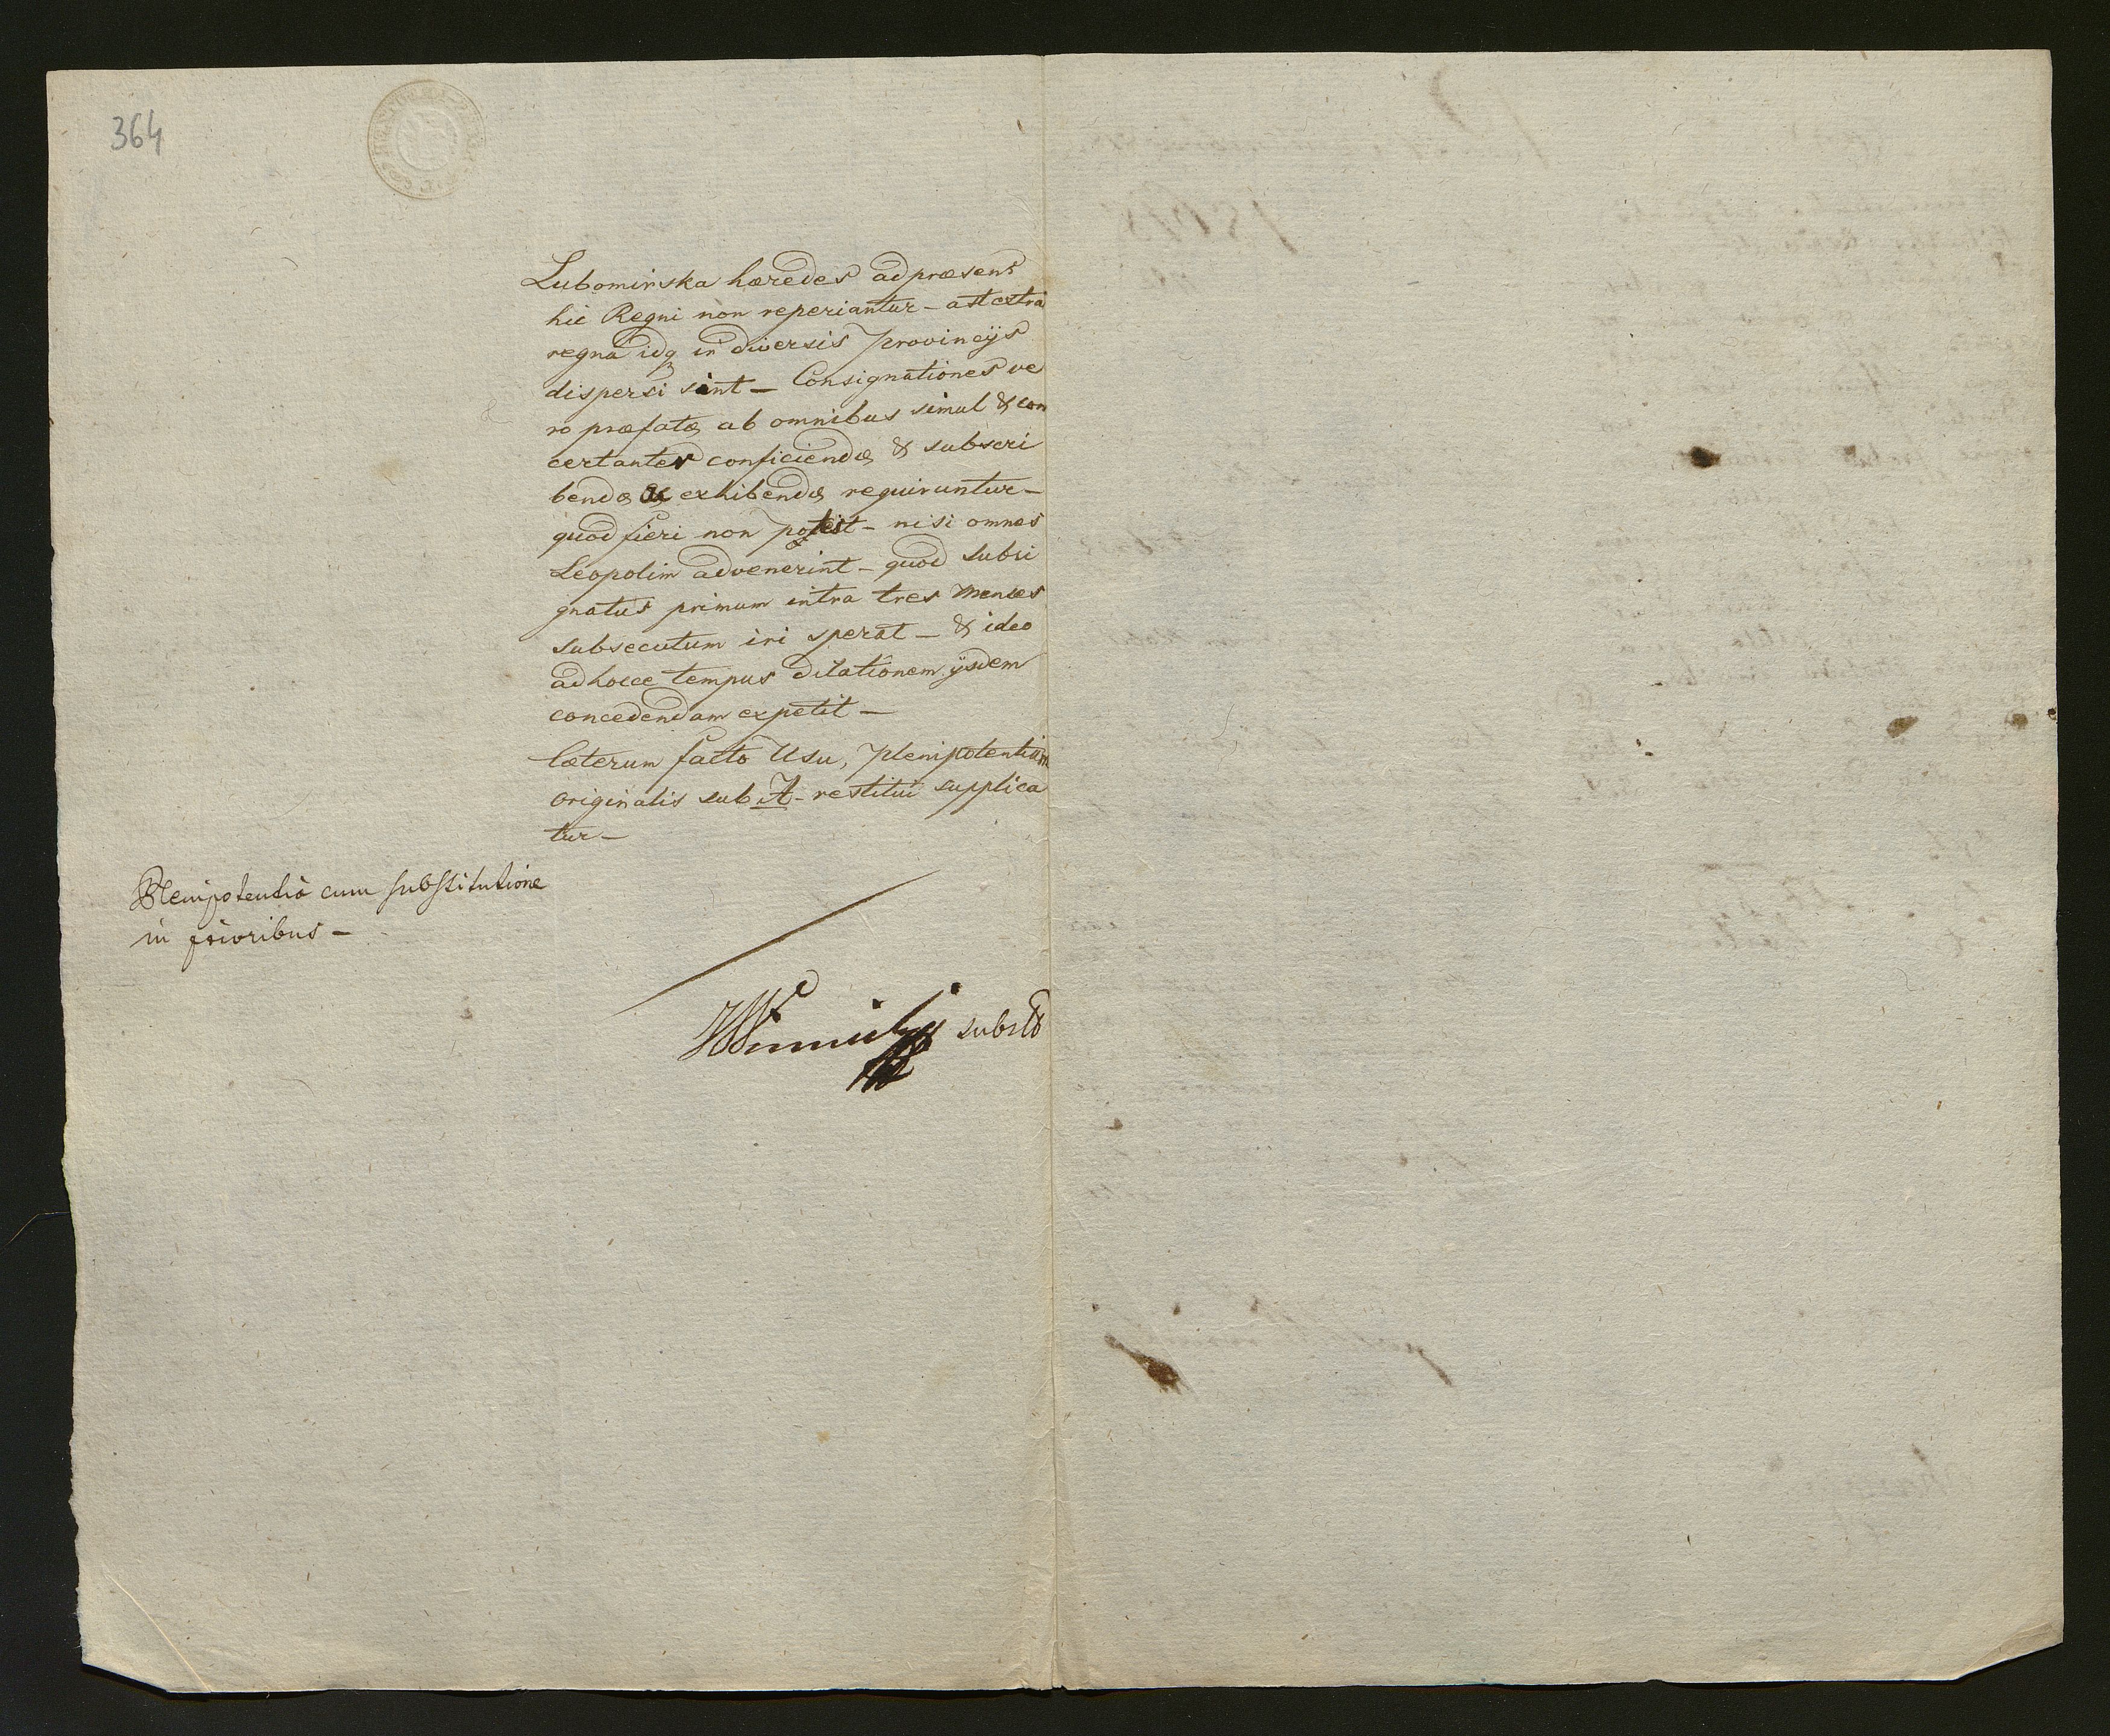 364
Lubomirska hæredes ad præsens
hic Regni non reperiantur – ast extra
regna idq in diversis Provincijs
dispersi sint – Consignationes ve
ro præfatæ ab omnibus simul & con
certantes conficiendæ & subscri
bendæ & exhibendæ requiruntur –
quod fieri non potest – nisi omnes
Leopolim advenerint – quod subsi
gnatus primum intra tres Menses
subsecutum iri sperat – & ideo
ad hocce tempus dilationem ijsdem
concedendam expetit –
Cæterum facto Usu, Plenipotentiam
originalis sub A – restitui supplica
tur –
Plenipotentia cum substitutione
in prioribus –